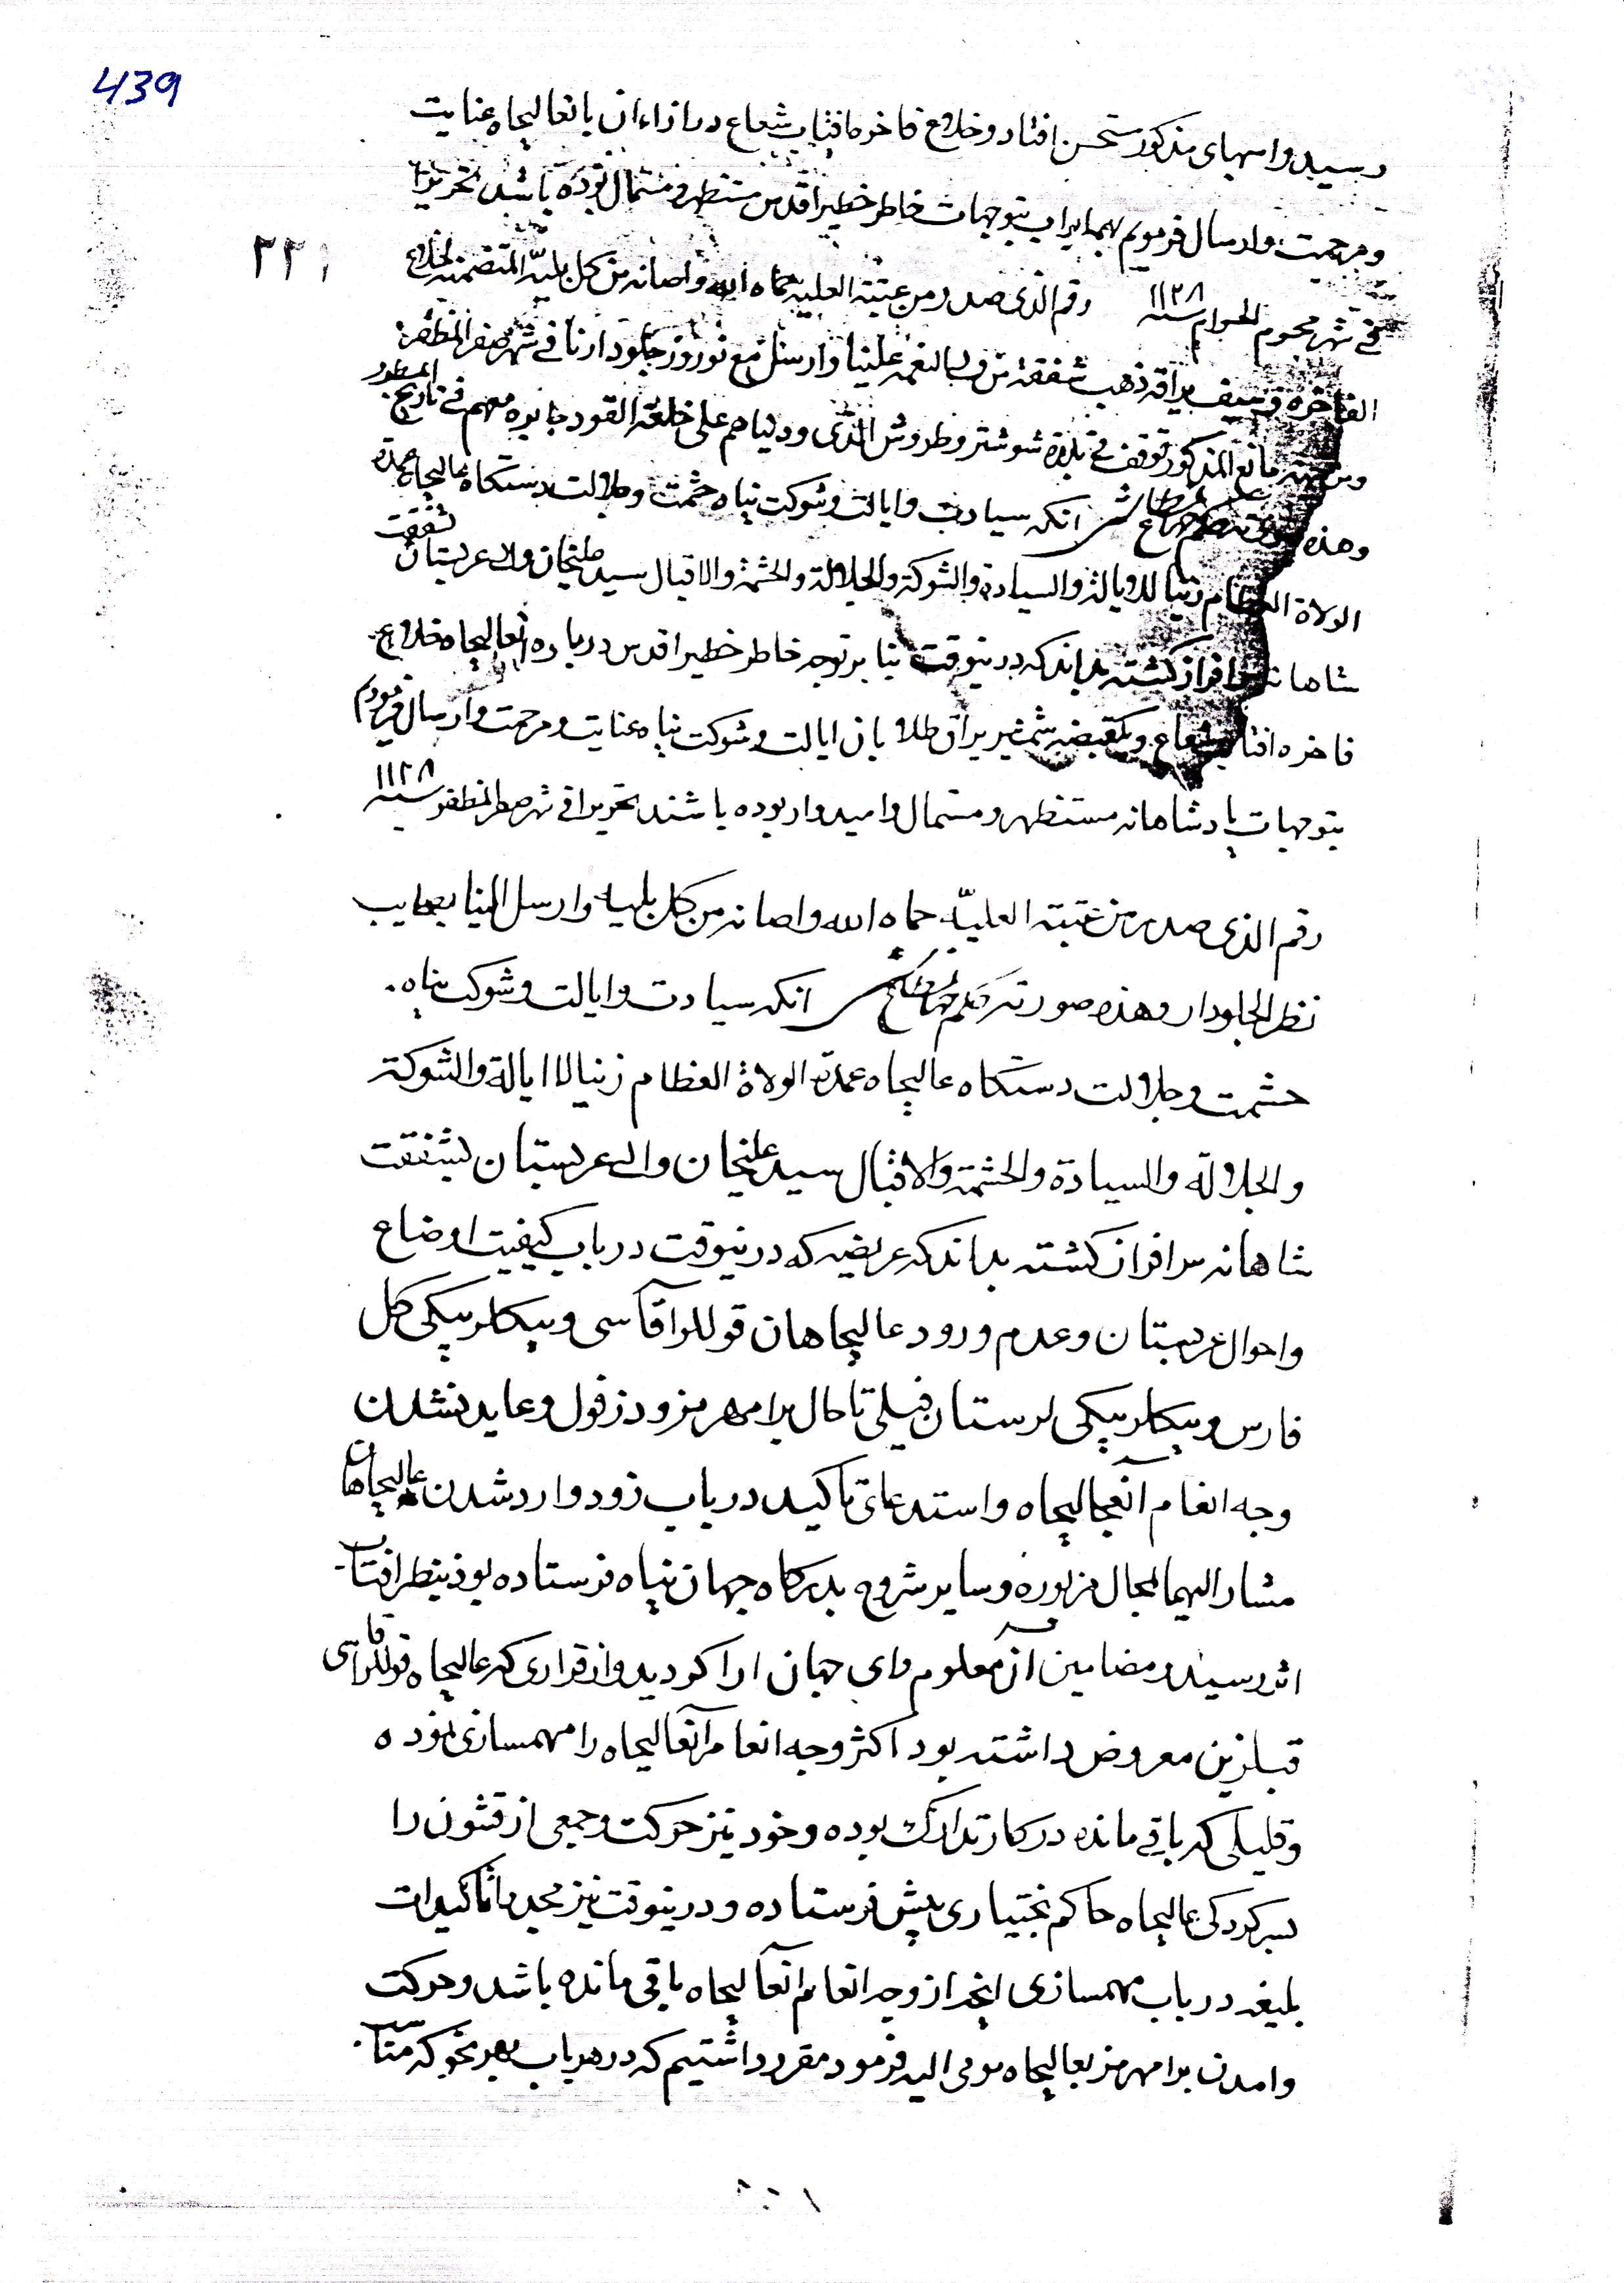 439
رسید و اسبهای مذکور مستحسن افتاد و خلاع فاخره افتاب شعاع در ازاء ان بانعالیجاه عنایت
و مرحمت و ارسال فرمودیم بهمه ابواب بتوجهات خاطر خطیر اقدس مستظهر و مستمال بوده باشند تحریرا
۲۲۱
فی شهر محرم الحرام سنه ۱۱۲۸ رقم الذی صدر من عتبته العلیه حماه الله و اصانه من کل بلیه المتضمنة لخلاع
الفاخرة و سیف یراقه ذهب شفقة من ولی النعمه علینا و ارسل مع نوروز جلودارنا فی شهر صفر المظفر
المذکور توقف فی بلدة شوشتر و طروش الذی ودیناهم علی خلعة القود جابوه معهم فی تاریخ المسطور
وهذه انکه سیادت و ایالت و شوکت پناه حشمت و جلالت دستکاه عالیجاه عمدة
الولاة العظام زینا للایالة والسیادة والشوکة والجلالة والحشمة والاقبال سید علیخان والی عربستان بشفقت
شاهانه سرافراز کشته بداند که درینوقت بنابر توجه خاطر خطیر اقدس درباره انعالیجاه خلاع
فاخره افتاب شعاع و یکقبضه شمشیر یراق طلا بان ایالت و شوکت پناه عنایت و مرحمت و ارسال فرمودیم
بتوجهات پادشاهانه مستظهر و مستمال و امیدوار بوده باشند تحریرا فی شهر صفر المظفر سنه ۱۱۲۸
رقم الذی صدر من عتبته العلیه حماه الله و اصانه من کل بلیه و ارسل الینا بصحایب
نظر الجلودار وهذه صورته انکه سیادت و ایالت و شوکت پناه
حشمت و جلالت دستکاه عالیجاه عمدة الولاة العظام زینا للایالة والشوکة
والجلالة والسیادة والحشمة والاقبال سید علیخان والی عربستان بشفقت
شاهانه سرافراز کشته بداند که عریضه که درینوقت درباب کیفیت اوضاع
و احوال عربستان و عدم ورود عالیجاهان قوللرآقاسی و بیکلربیکی کل
فارس و بیکلربیکی لرستان فیلی تا حال برامهرمز و دزفول و عاید نشدن
وجه انعام آنعالیجاه و استدعای تاکید درباب زود وارد شدن عالیجاهان
مشار الیهما بمحال مزبوره و سایر شروح بدرکاه جهان پناه فرستاده بود بنظر افتاب
اثر رسید و مضامین آن معلوم رای جهان ارا کردید و از قراری که عالیجاه قوللرآقاسی
قبلزین معروض داشته بود اکثر وجه انعام آنعالیجاه را مهمسازی نموده
و قلیلی که باقی مانده در کار تدارک بوده و خود نیز حرکت و جمعی از قشون را
بسرکردکی عالیجاه حاکم بختیاری پیش فرستاده و درینوقت نیز مجددا تاکیدات
بلیغه درباب مهمسازی انچه از وجه انعام انعالیجاه باقی مانده باشد و حرکت
و امدن برامهرمز بعالیجاه مومی الیه فرموده مقرر داشتیم که در هر باب بهر نحو که متاب